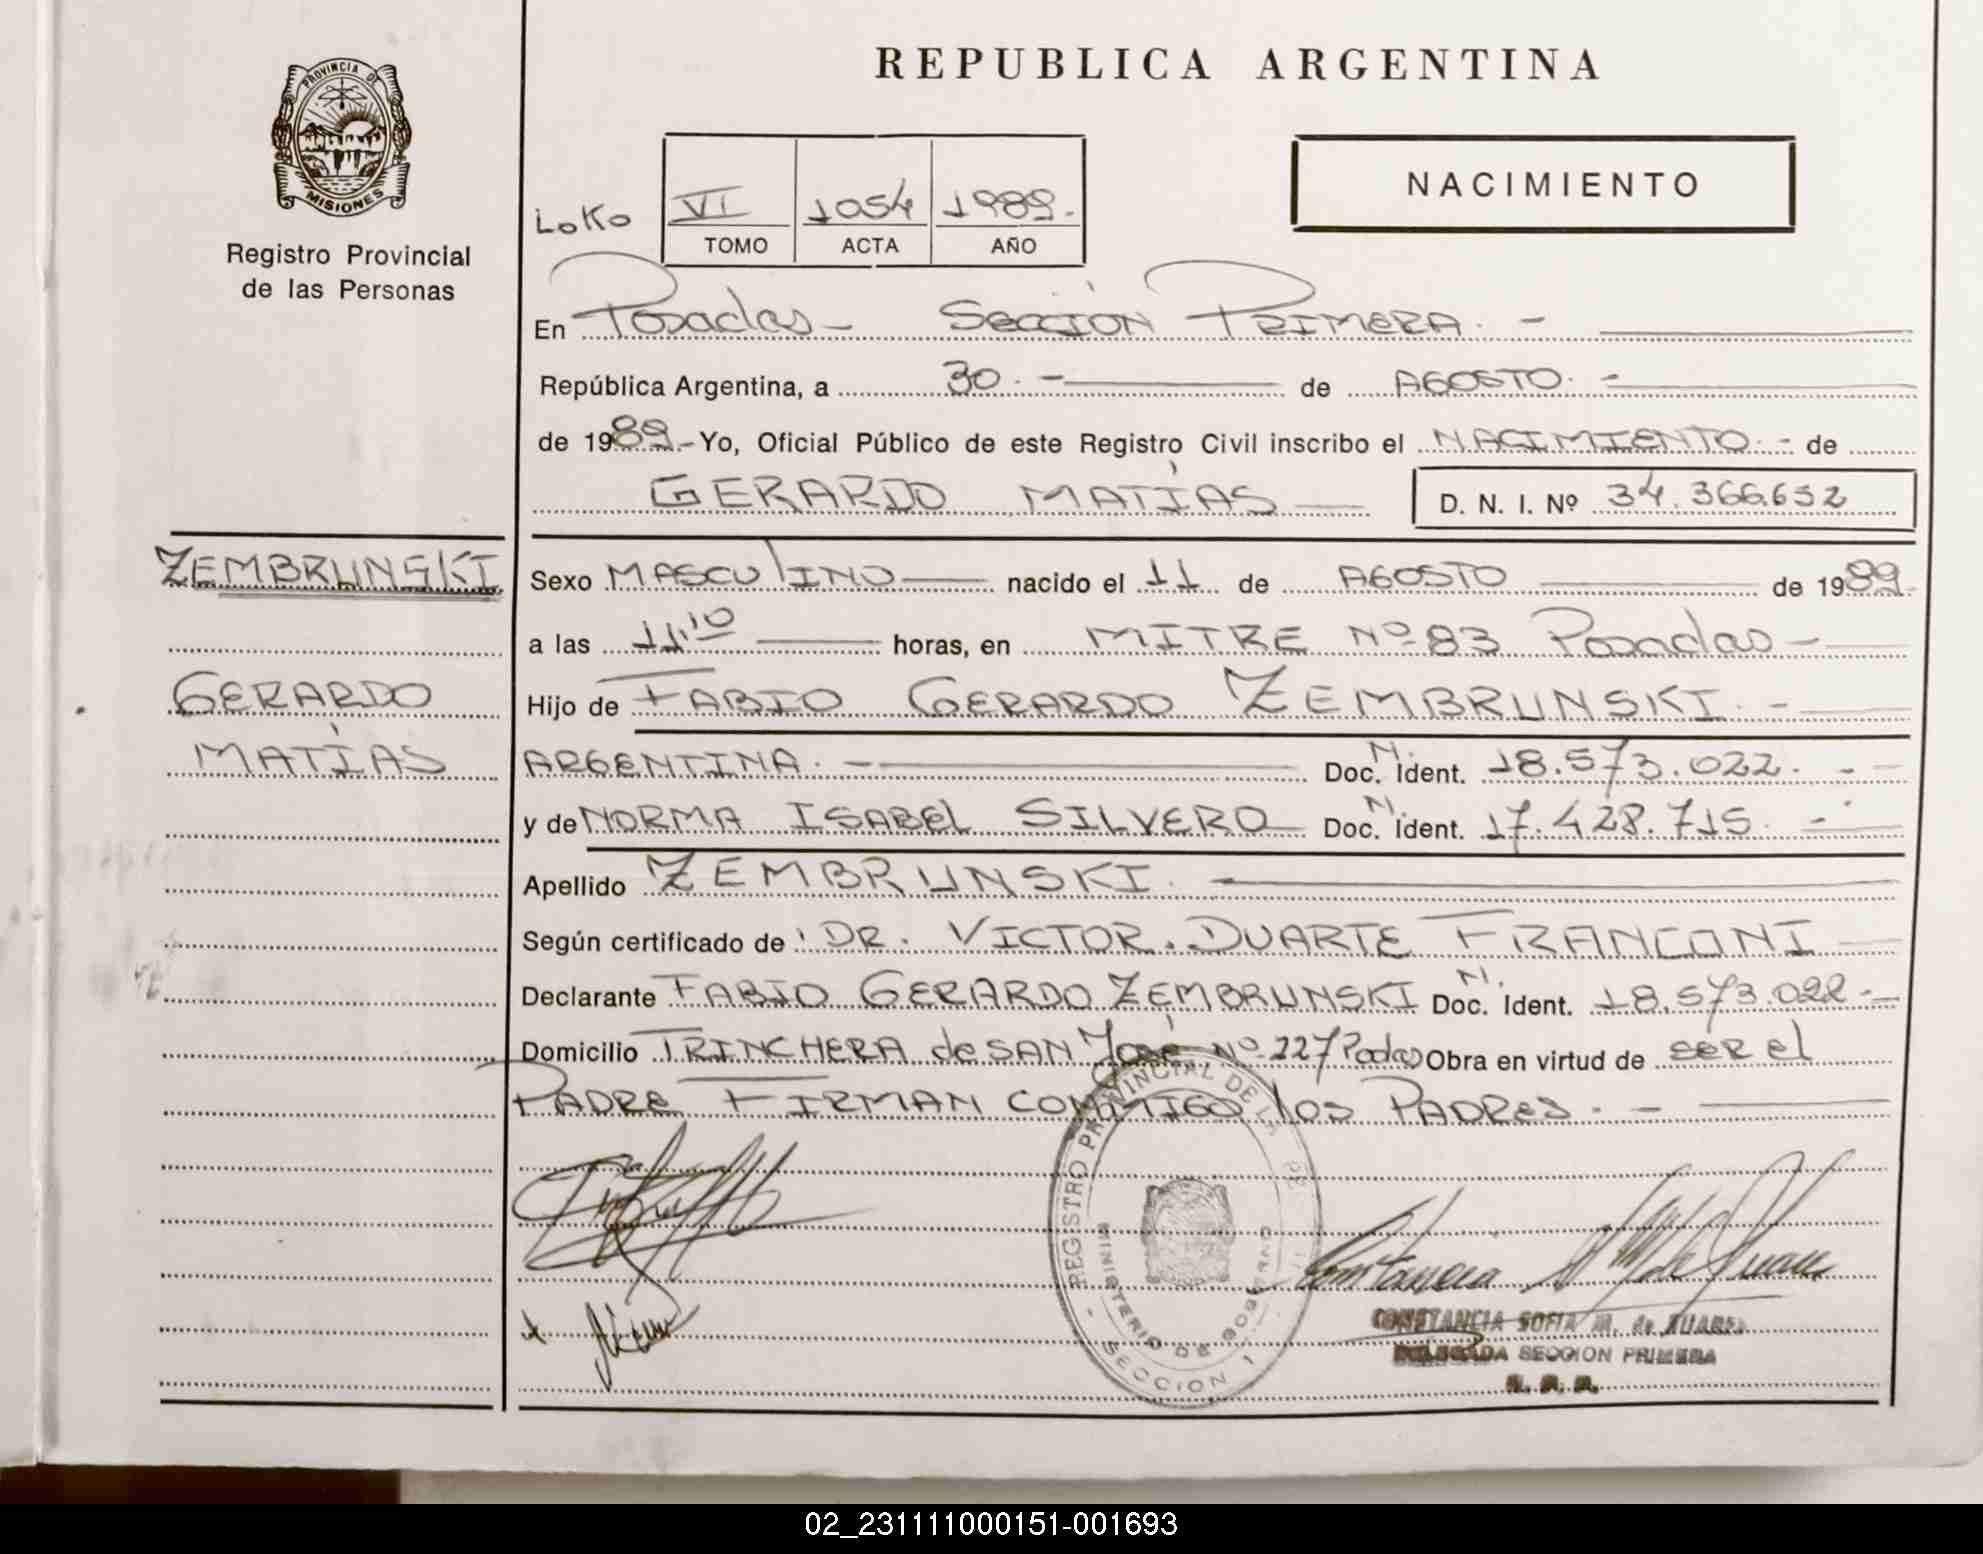 PROVINCIA DE
MISIONES
Registro Provincial
de las Personas
REPUBLICA ARGENTINA
LoKo
VI 1054 1989.-
TOMO ACTA AÑO
NACIMIENTO
En Posadas - Sección PRIMERA. -
República Argentina, a 30. - de AGOSTO. -
de 1989.- Yo, Oficial Público de este Registro Civil inscribo el NACIMIENTO. - de
GERARDO MATÍAS D. N. I. Nº 34.366.652
ZEMBRUNSKI
GERARDO
MATÍAS
Sexo MASCULINO nacido el 11 de AGOSTO de 1989.
a las 11,10 horas, en MITRE Nº 83 Posadas -
Hijo de FABIO GERARDO ZEMBRUNSKI. -
ARGENTINA. - Doc. N. Ident. 18.573.022. -
y de NORMA ISABEL SILVERO Doc. N. Ident. 17.428.715. -
Apellido ZEMBRUNSKI.
Según certificado de DR. VICTOR. DUARTE FRANCONI
Declarante FABIO GERARDO ZEMBRUNSKI Doc. N. Ident. 18.573.022. -
Domicilio TRINCHERA de SAN José Nº 227 Podas Obra en virtud de SER el
PADRE FIRMAN CONMIGO los PADRES. -
REGISTRO PROVINCIAL DE LAS
MINISTERIO DE GOBIERNO
- SECCION 1
CONSTANCIA SOFIA M. de SUAREZ
DELEGADA SECCION PRIMERA
02_231111000151-001693